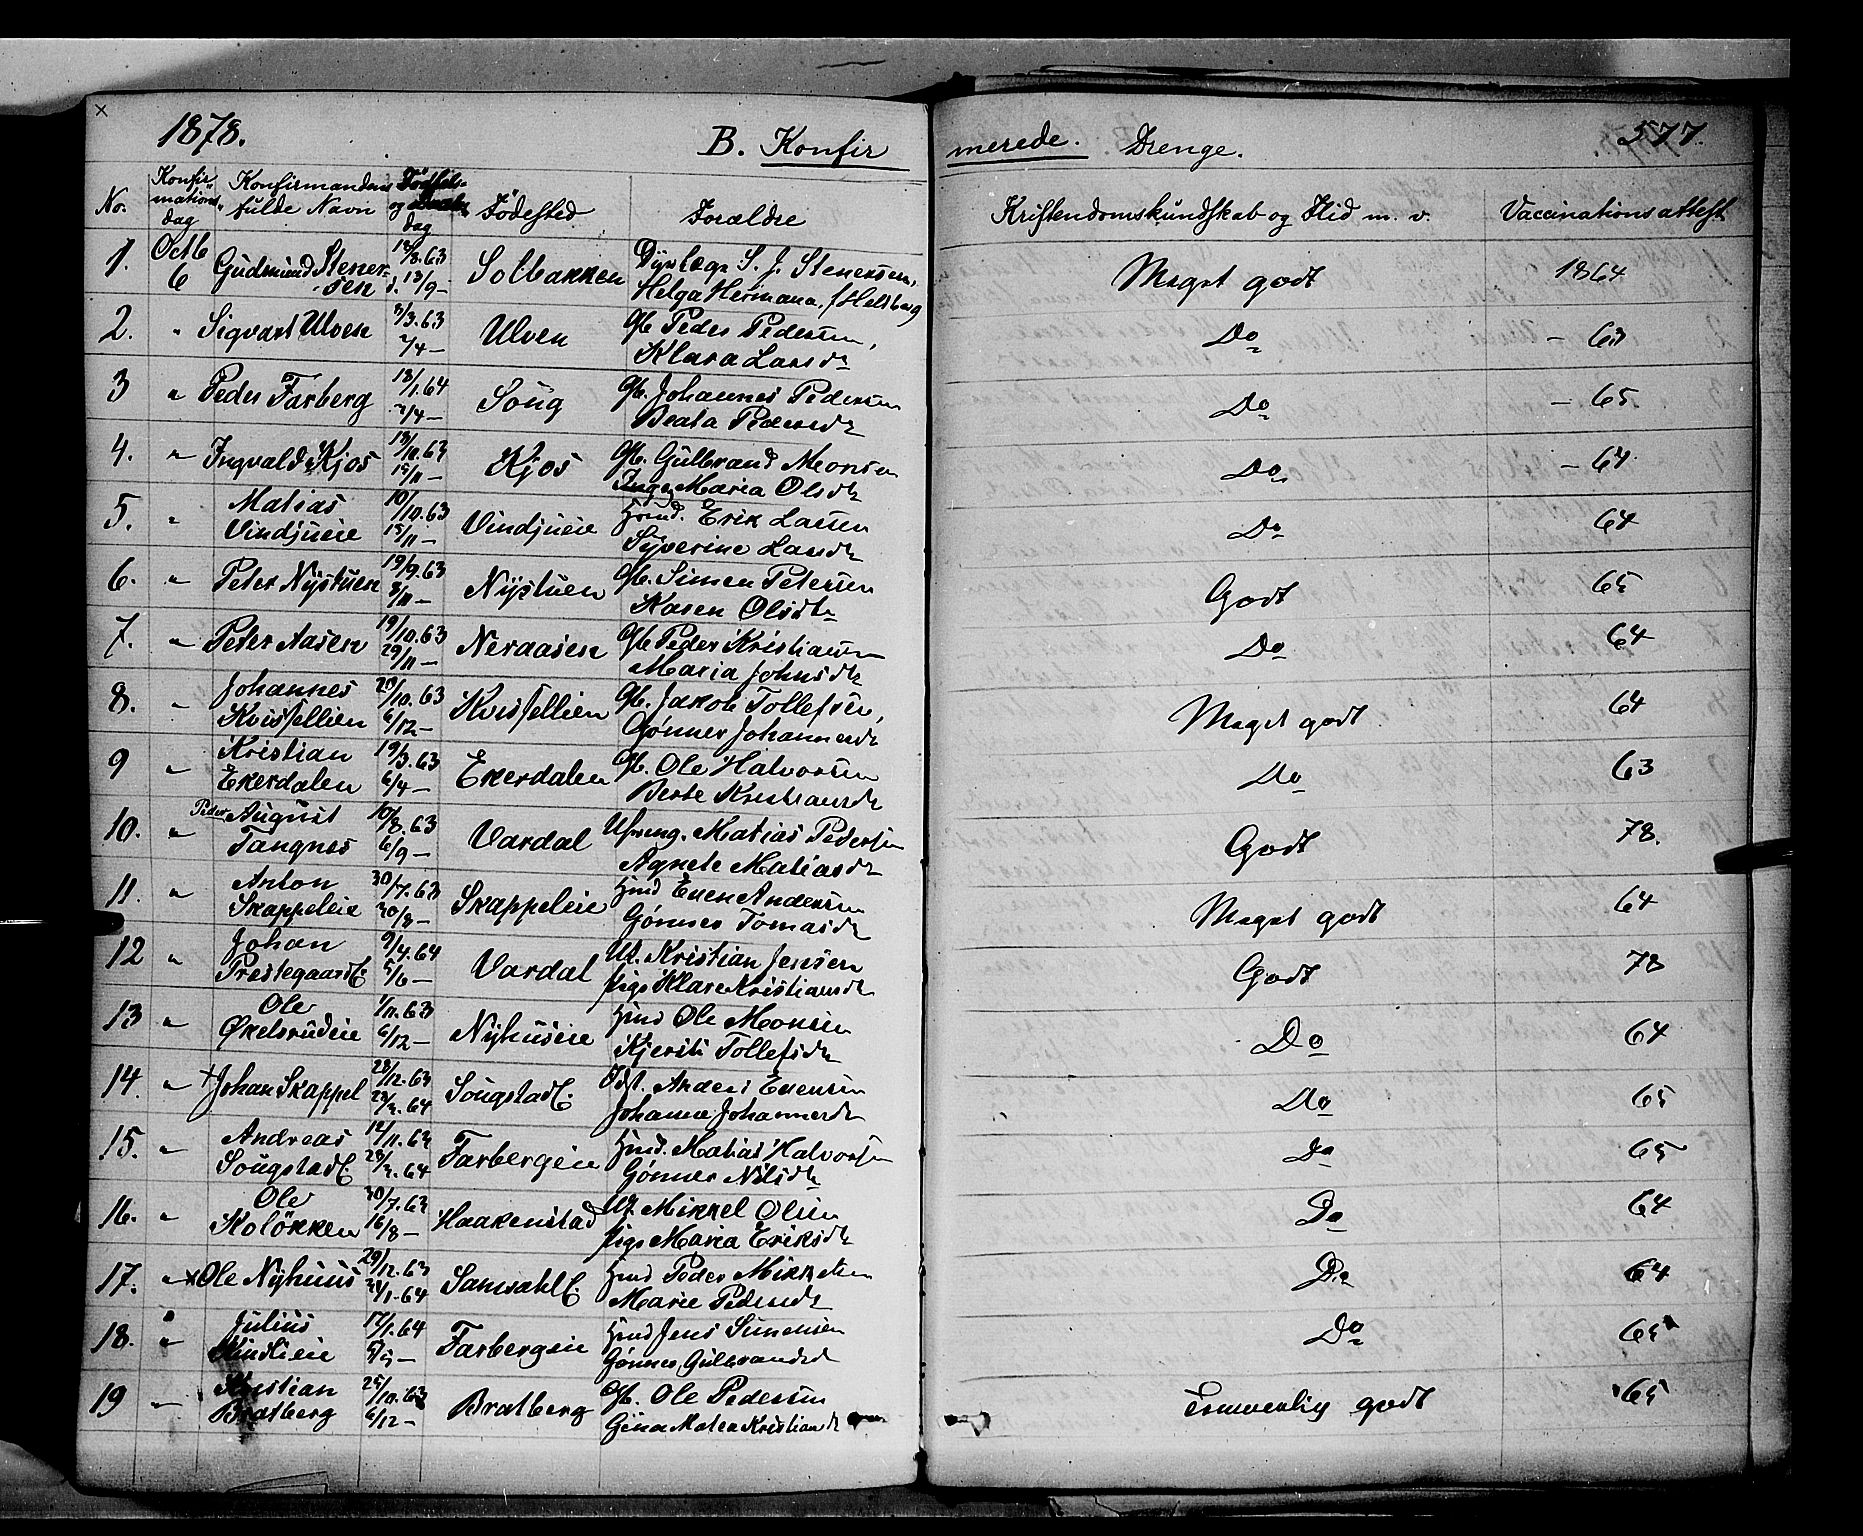 1878.
B. Konfir
merede. Drenge.
577.
No. Konfirmations dag Konfirmandens fulde Navn Födsels- og dag Födested Forældre Kristendomskundskab og Flid m. v. Vaccinationsattest
1. Octb 6 Gudmund Stenersen 63 d. 13/9 — Solbakken Dyrlæge S. J. Stenersen, Helga Hermana, f Helsberg Meget godt 1864
2. " Sigvart Ulven /3. 63 /4 — Ulven Gb Peder Pedersen, Klara Larsdr Do — 63
3 " Peder Farberg 13/1. 64 /4 — Soug Gb. Johannes Pedersen Beata Pedersdr Do — 65
4. " Ingvald Kjos 13/10. 63 15/11 — Kjos Gb. Gulbrand Monsen Inger Maria Olsdr Do — 64
5. " Matias Vindjueie 10/10. 63 15/11 — Vindjueie Hmd. Erik Larsen Syverine Larsdr Do 64
6. " Peter Nystuen 19/9. 63 8/11 — Nystuen Gb. Simen Petersen Karen Olsdtr Godt 65
7. " Peter Aasen 19/10. 63 29/11 — Neraasen Gb Peder Kristiansen Maria Johnsdr Do 64
8. " Johannes Kvisllien 20/10. 63 6/12 — Kvisllien Gb. Jakob Tollefsen, Gønner Johannesdr Meget godt 64
9 " Kristian Ekerdalen 19/3. 63 6/4 — Ekerdalen Gb. Ole Halvorsen Berte Kristiansdr Do 63
10. " Peder August Tangnes 10/8. 63 6/9 — Vardal Matias Pedersen Agnete Matiasdr Godt 78.
11. " Anton Skappeleie 30/7. 63 30/8 — Skappeleie Hmd Even Andersen Gønner Tomasdr Meget godt 64
12 " Johan Prestegaardse. 9/4. 64 5/6 — Vardal Uf. Kristian Jensen pige Klara Kristiansdr Godt 78
13 " Ole Økelsrudeie 1/11. 63 6/12 — Nyhuseie Hmd Ole Monsen Kjersti Tollefsdr Do 64
14. " + Johan Skappel 28/12. 63 64 Sougstade. Anders Evensen Johanne Johannesdr Do 65
15. " Andreas Sougstade. 14/11. 63 64 Farbergeie Hmd. Matias Halvorsen Gønner Nilsdtr Do 65
16. " Ole Koløkken 30/7. 63 16/8 — Haakenstad Uf. Mikkel Olsen pige Maria Eriksdr Do 64
17. " x Ole Nyhuus 29/12. 63 24/1. 64 Samsahle. Hmd Peder Mikkelsen Marie Pedersdr Do 64
18. " Julius Kindlieie 12/1. 64 Farbergeie Hmd Jens Simensen Gønner Gulbrandsd Do 65
19 " Kristian Bratberg 25/10. 63 6/12 — Bratberg Gb. Ole Pedersen Gina Matea Kristiansdr Temmelig godt 65